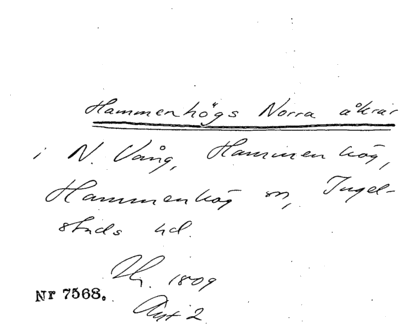 Hammenhögs Norra åkrar
i N. Vång, Hammenhög,
Hammenhög sn, Ingel-
stads hd.
1809
Nr 7568.
Akt 2